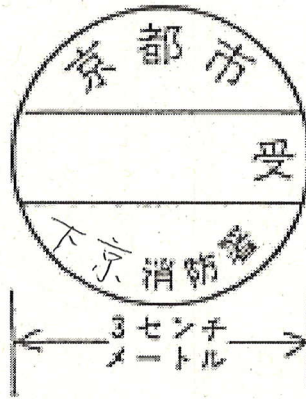 京都市
受
下京消防署
3センチ
メートル